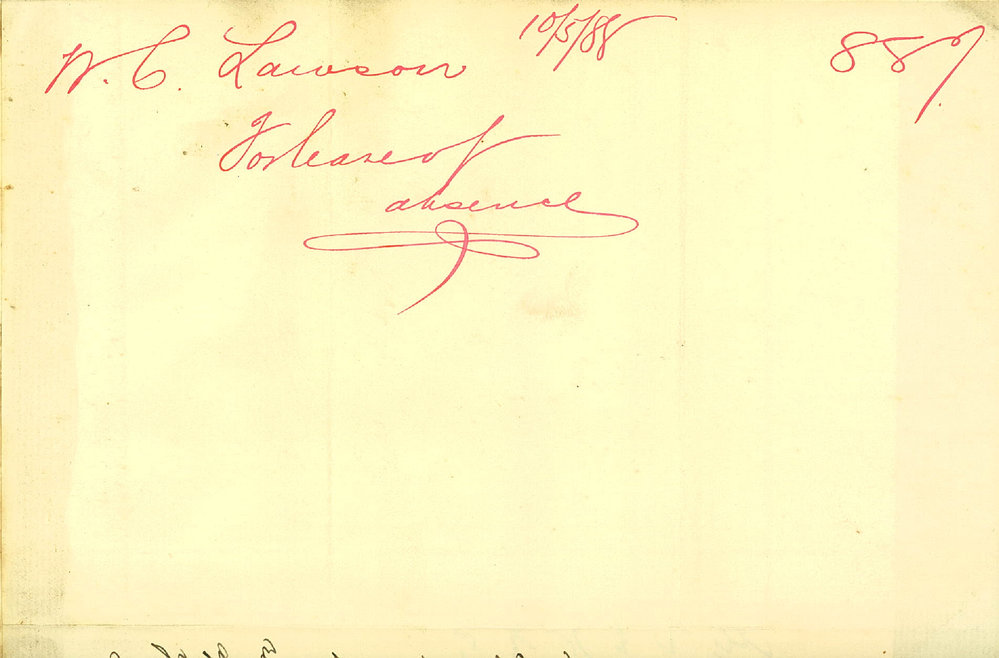 10/5/88
W. C. Lawson 887.
For leave of
absence